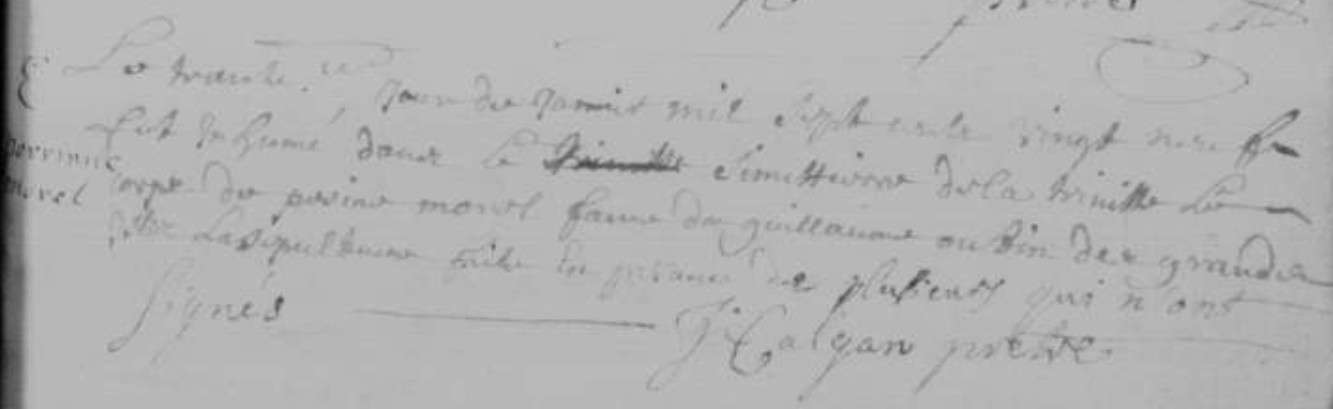 Le trante. jour de janvier mil sept cents vingt neuf
Est Inhumé dans le simittierre de la trinitte Le
perrinne
morel
corps de perine morel fame de guillaume aubin des grandes
La sepulture faite en presance de plusieurs qui n'ont
signés J: Calgan prestre.